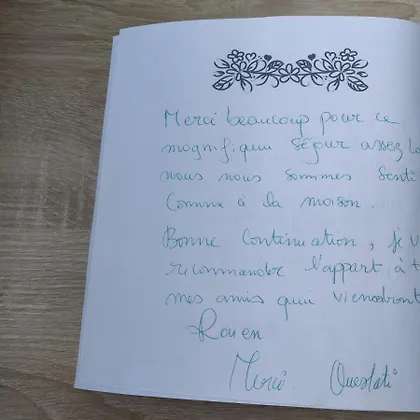 Merci beaucoup pour ce
magnifique ségur assez lo
nous nous sommes senti
Comme à la maison.
Bonne Continuation, je v
recommander l'appart à t
mes amis qui viendront
Rouen
Merci Oueslati